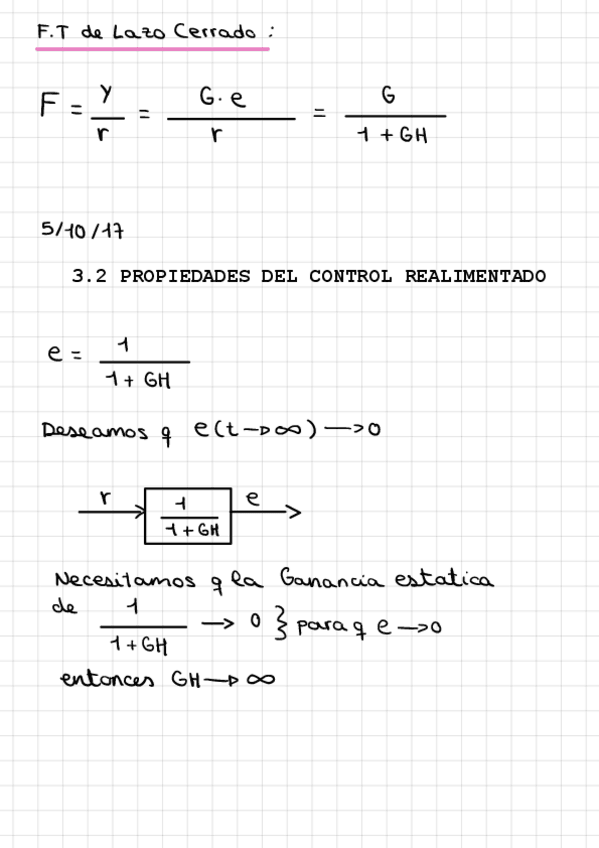 F.T de Lazo Cerrado :
F = y/r = G·e/r = G/(1 + GH)
5/10/17
3.2 PROPIEDADES DEL CONTROL REALIMENTADO
e = 1/(1 + GH)
Deseamos q e(t→∞) → 0
r 1/(1+GH) e
Necesitamos q la Ganancia estatica
de 1/(1+GH) → 0 } para q e → 0
entonces GH → ∞